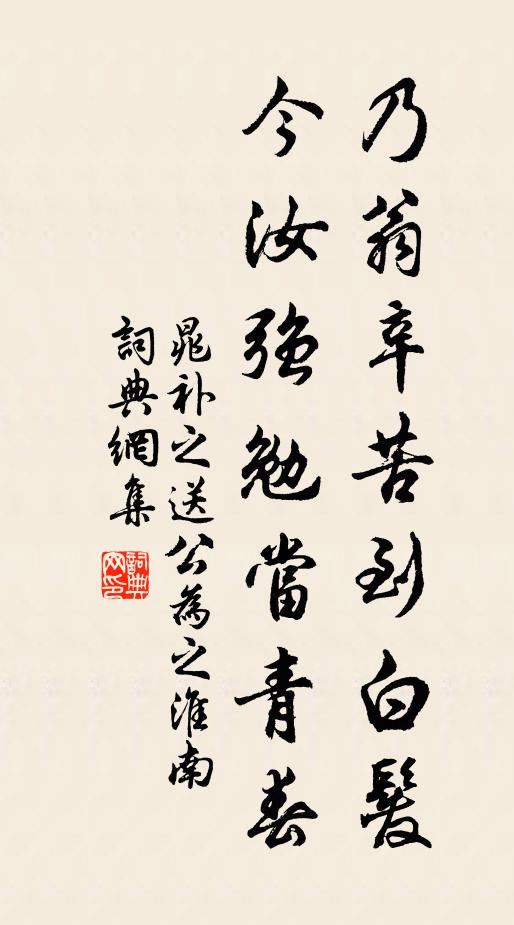 乃翁辛苦到白髮
今汝強勉當青春
晁补之送公為之淮南
詞典網集
詞典網印